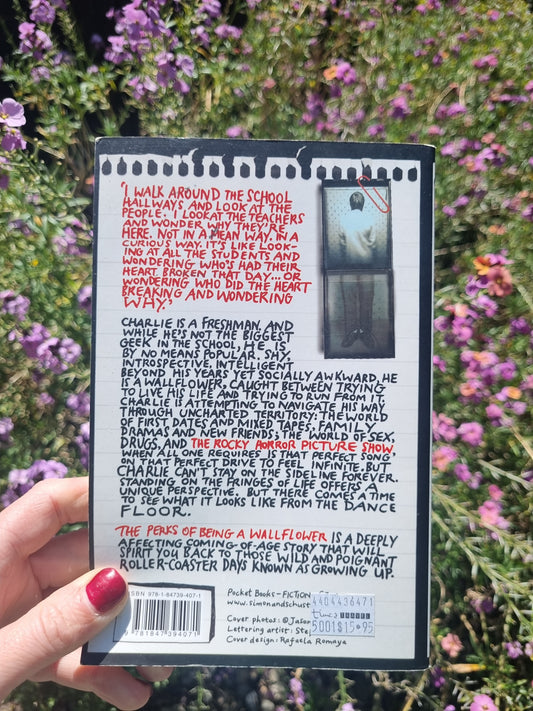 'I WALK AROUND THE SCHOOL
HALLWAYS AND LOOK AT THE
PEOPLE. I LOOK AT THE TEACHERS
AND WONDER WHY THEY'RE
HERE. NOT IN A MEAN WAY. IN A
CURIOUS WAY. IT'S LIKE LOOK-
ING AT ALL THE STUDENTS AND
WONDERING WHO'S HAD THEIR
HEART BROKEN THAT DAY... OR
WONDERING WHO DID THE HEART
BREAKING AND WONDERING
WHY.'
CHARLIE IS A FRESHMAN. AND
WHILE HE'S NOT THE BIGGEST
GEEK IN THE SCHOOL, HE IS
BY NO MEANS POPULAR. SHY,
INTROSPECTIVE, INTELLIGENT
BEYOND HIS YEARS YET SOCIALLY AWKWARD, HE
IS A WALLFLOWER, CAUGHT BETWEEN TRYING
TO LIVE HIS LIFE AND TRYING TO RUN FROM IT.
CHARLIE IS ATTEMPTING TO NAVIGATE HIS WAY
THROUGH UNCHARTED TERRITORY: THE WORLD
OF FIRST DATES AND MIXED TAPES, FAMILY
DRAMAS AND NEW FRIENDS; THE WORLD OF SEX,
DRUGS, AND THE ROCKY HORROR PICTURE SHOW,
WHEN ALL ONE REQUIRES IS THAT PERFECT SONG
ON THAT PERFECT DRIVE TO FEEL INFINITE. BUT
CHARLIE CAN'T STAY ON THE SIDELINE FOREVER.
STANDING ON THE FRINGES OF LIFE OFFERS A
UNIQUE PERSPECTIVE. BUT THERE COMES A TIME
TO SEE WHAT IT LOOKS LIKE FROM THE DANCE
FLOOR.
THE PERKS OF BEING A WALLFLOWER IS A DEEPLY
AFFECTING COMING-OF-AGE STORY THAT WILL
SPIRIT YOU BACK TO THOSE WILD AND POIGNANT
ROLLER-COASTER DAYS KNOWN AS GROWING UP.
ISBN 978-1-84739-407-1
9 781847 394071
Pocket Books - FICTION
www.simonandschust
4404436471
5001$15.95
Cover photos: © Jason
Lettering artist: Ste
Cover design: Rafaela Romaya